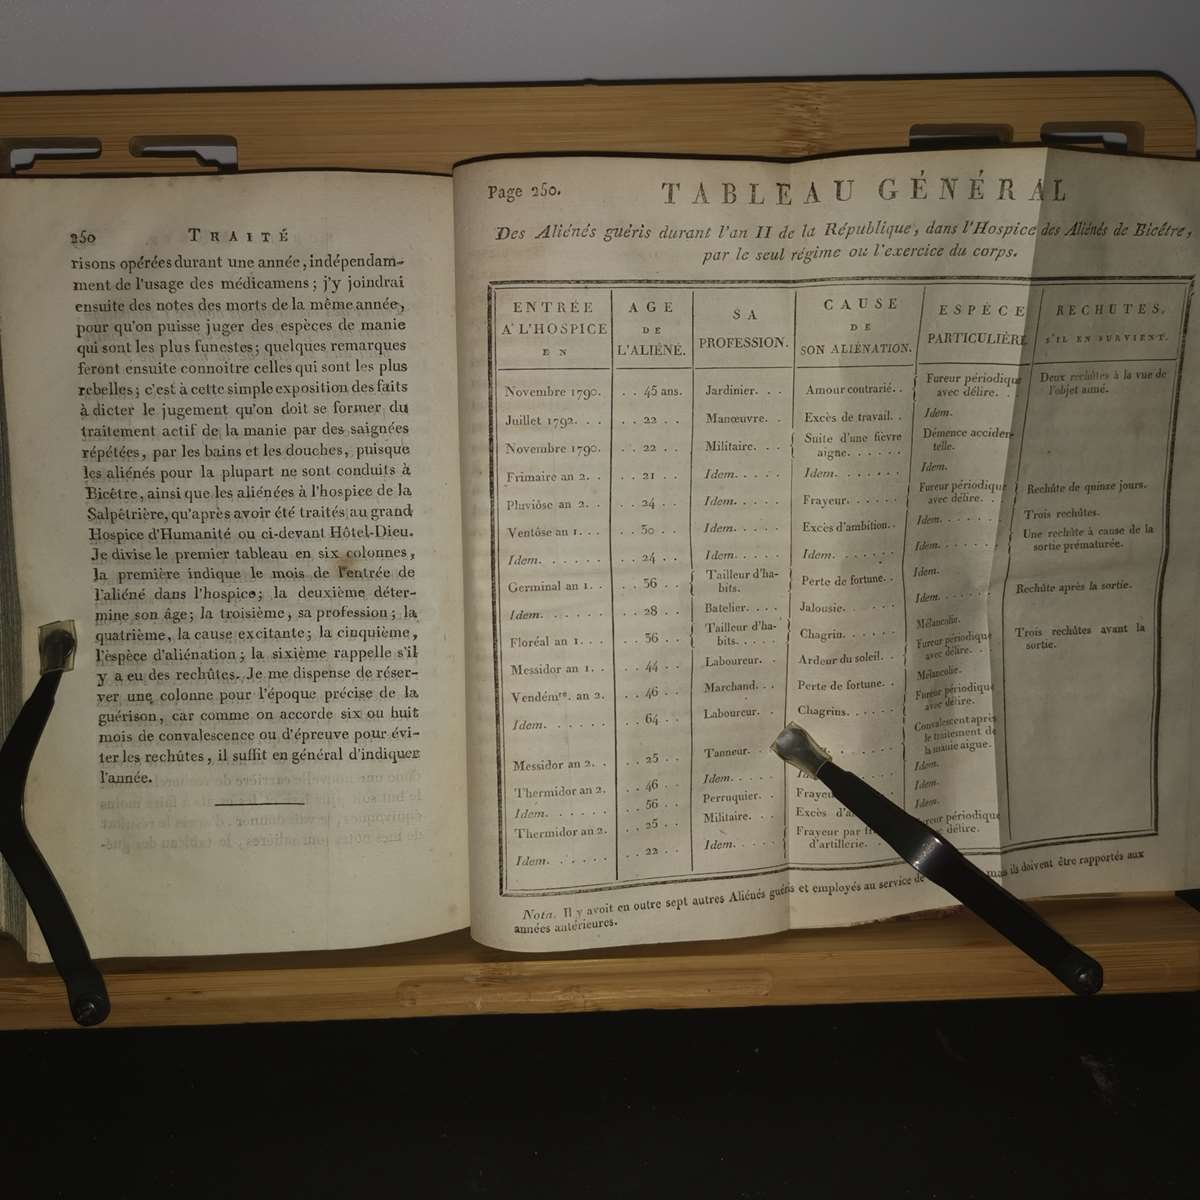 250 TRAITÉ
risons opérées durant une année, indépendam-
ment de l'usage des médicamens ; j'y joindrai
ensuite des notes des morts de la même année,
pour qu'on puisse juger des espèces de manie
qui sont les plus funestes ; quelques remarques
feront ensuite connoître celles qui sont les plus
rebelles ; c'est à cette simple exposition des faits
à dicter le jugement qu'on doit se former du
traitement actif de la manie par des saignées
répétées, par les bains et les douches, puisque
les aliénés pour la plupart ne sont conduits à
Bicêtre, ainsi que les aliénées à l'hospice de la
Salpêtrière, qu'après avoir été traités au grand
Hospice d'Humanité ou ci-devant Hôtel-Dieu.
Je divise le premier tableau en six colonnes,
la première indique le mois de l'entrée de
l'aliéné dans l'hospice ; la deuxième déter-
mine son âge ; la troisième, sa profession ; la
quatrième, la cause excitante ; la cinquième,
l'espèce d'aliénation ; la sixième rappelle s'il
y a eu des rechûtes. Je me dispense de réser-
ver une colonne pour l'époque précise de la
guérison, car comme on accorde six ou huit
mois de convalescence ou d'épreuve pour évi-
ter les rechûtes, il suffit en général d'indiquer
l'année.
Page 250.
TABLEAU GÉNÉRAL
Des Aliénés guéris durant l'an II de la République, dans l'Hospice des Aliénés de Bicêtre,
par le seul régime ou l'exercice du corps.
ENTRÉE A L'HOSPICE EN | AGE DE L'ALIÉNÉ. | SA PROFESSION. | CAUSE DE SON ALIÉNATION. | ESPÈCE PARTICULIÈRE | RECHUTES, S'IL EN SURVIENT.
Novembre 1790. . . 45 ans. Jardinier. . . Amour contrarié. . Fureur périodique avec délire. . . Deux rechûtes à la vue de l'objet aimé.
Juillet 1792. . . . . 22 . . Manœuvre. . Excès de travail. . Idem.
Novembre 1790. . . 22 . . Militaire. . . Suite d'une fièvre aigue. . . . . . Démence acciden-telle.
Frimaire an 2. . . . 21 . . Idem. . . . . Idem. . . . . . Idem.
Pluviôse an 2. . . . 24 . . Idem. . . . . Frayeur. . . . . . Fureur périodique avec délire. . . Rechûte de quinze jours.
Ventôse an 1. . . . . 30 . . Idem. . . . . Excès d'ambition. . Idem. . . . . . . Trois rechûtes.
Idem. . . . . . . . . 24 . . Idem. . . . . Idem. . . . . . Idem. . . . . . . Une rechûte à cause de la sortie prématurée.
Germinal an 1. . . . 36 . . Tailleur d'ha-bits. Perte de fortune. . Idem.
Idem. . . . . . . . 28 . . Batelier. . . . Jalousie. . . . . . Idem. . . . . . . Rechûte après la sortie.
Floréal an 1. . . . . 36 . . Tailleur d'ha-bits. . . . . Chagrin. . . . . . Mélancolie.
Messidor an 1. . . . 44 . . Laboureur. . Ardeur du soleil. . Fureur périodique avec délire. . . Trois rechûtes avant la sortie.
Vendémre. an 2. . . 46 . . Marchand. . . Perte de fortune. . Mélancolie.
Idem. . . . . . . . 64 . . Laboureur. . . Chagrins. . . . . . Fureur périodique avec délire.
Messidor an 2. . . . 25 . . Tanneur. . . Convalescent après le traitement de la manie aigue.
Thermidor an 2. . . 46 . . Idem. . . . . Idem.
Idem. . . . . . . . 36 . . Perruquier. . Idem.
Thermidor an 2. . . 25 . . Militaire. . . Excès Idem.
Idem. . . . . . . . 22 . . Idem. . . . . Frayeur par d'artillerie. . périodique délire.
Nota. Il y avoit en outre sept autres Aliénés guéris et employés au service de mais ils doivent être rapportés aux
années antérieures.